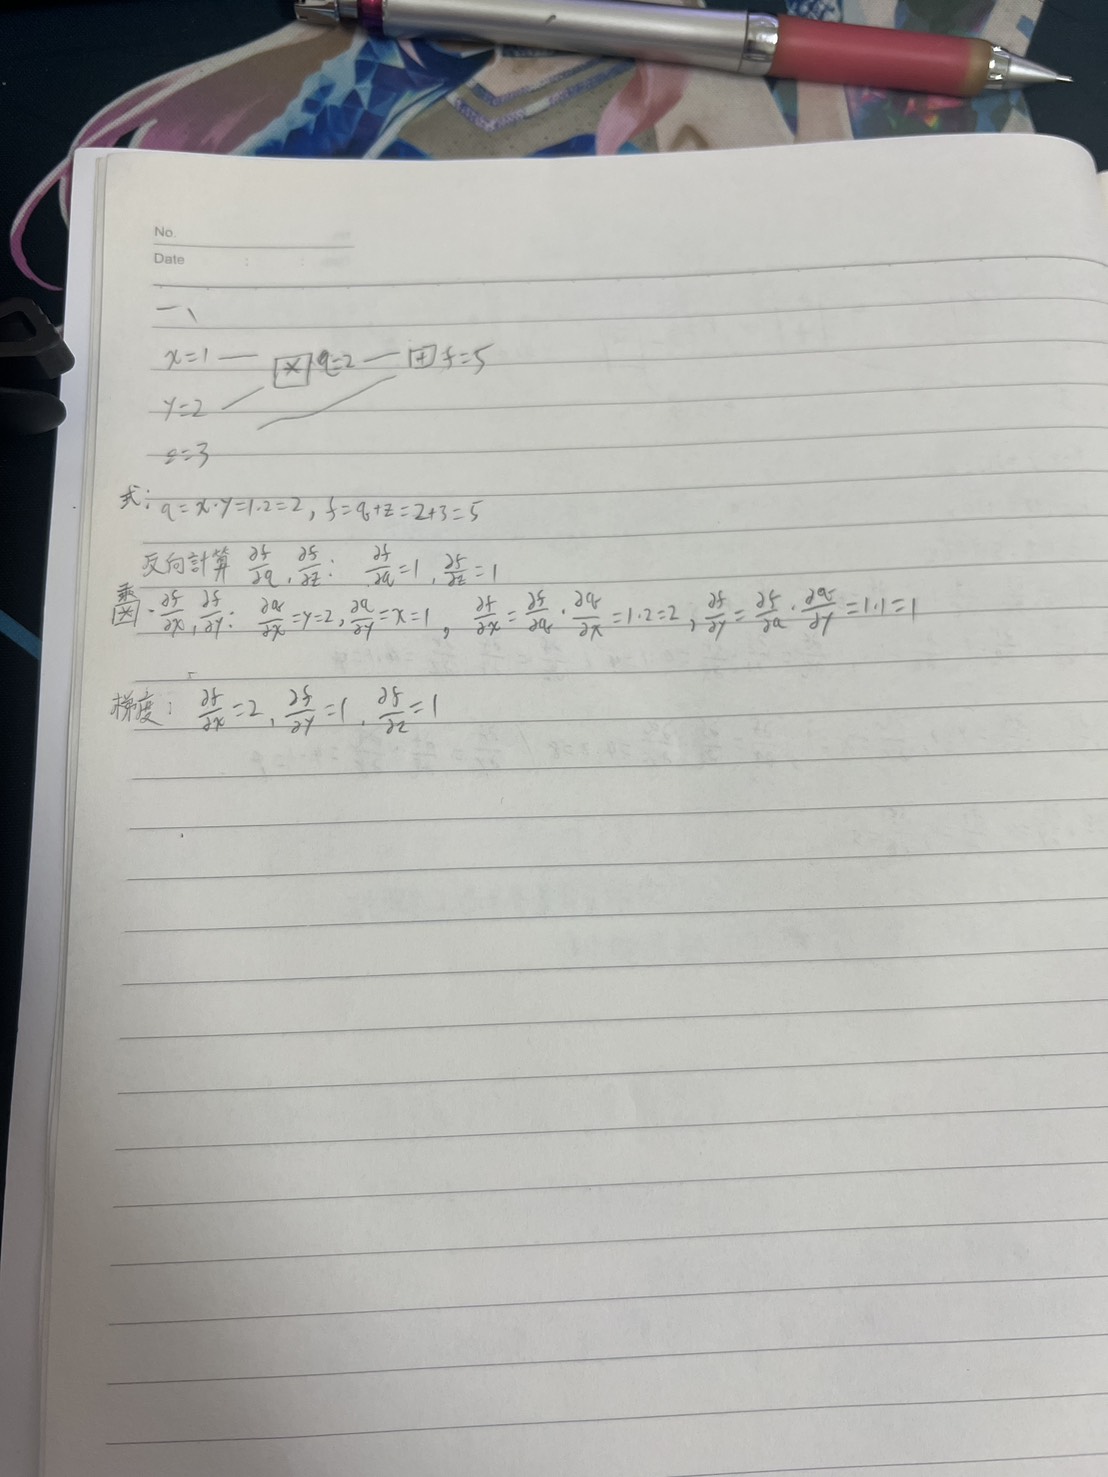 No.
Date : :
一、
x=1 — [*] q=2 — [+] f=5
y=2
z=3
式: q=x·y=1·2=2, f=q+z=2+3=5
反向計算 ∂f/∂q, ∂f/∂z: ∂f/∂q=1, ∂f/∂z=1
乘
[*] · ∂f/∂x, ∂f/∂y: ∂q/∂x=y=2, ∂q/∂y=x=1, ∂f/∂x=∂f/∂q·∂q/∂x=1·2=2, ∂f/∂y=∂f/∂q·∂q/∂y=1·1=1
梯度: ∂f/∂x=2, ∂f/∂y=1, ∂f/∂z=1